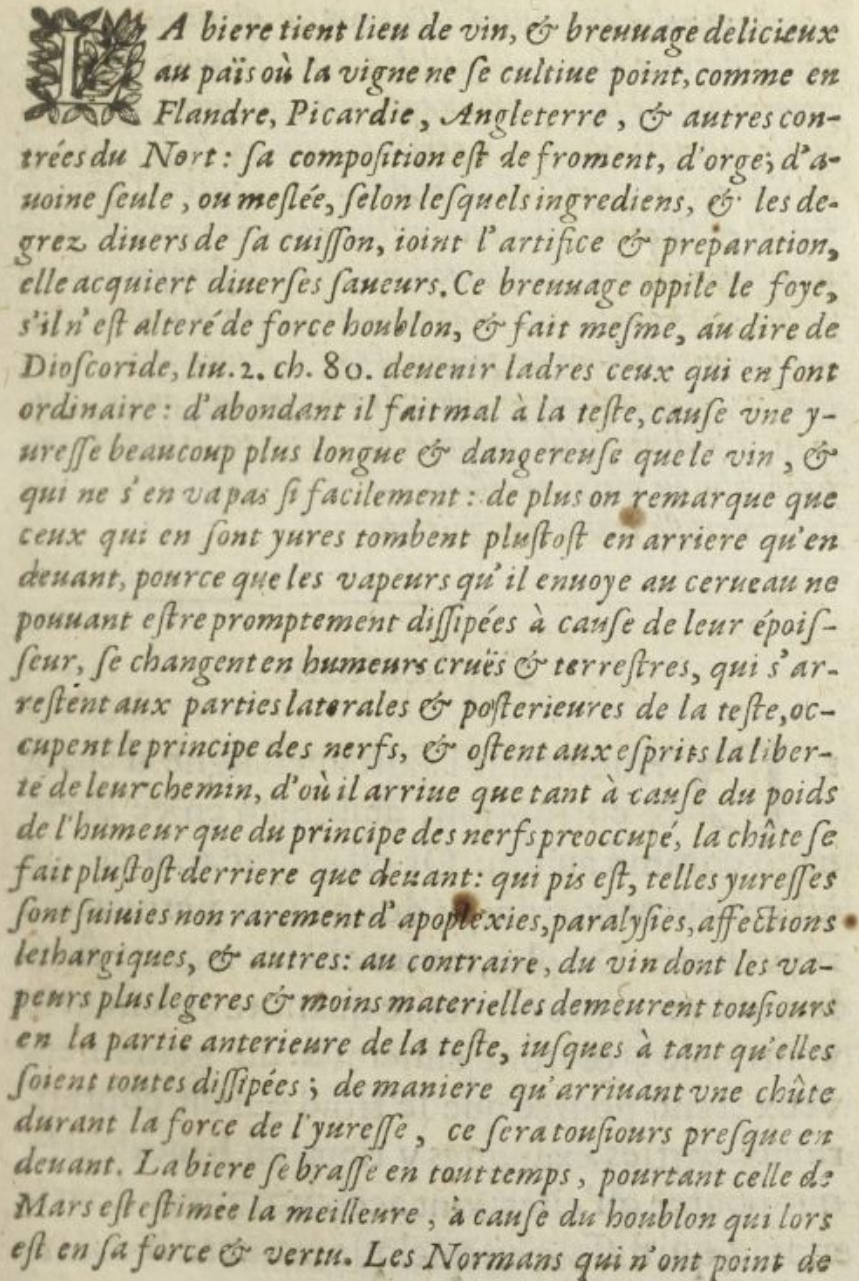 LA biere tient lieu de vin, & breuuage delicieux
au païs où la vigne ne ſe cultiue point, comme en
Flandre, Picardie, Angleterre, & autres con-
trées du Nort: ſa compoſition eſt de froment, d'orge, d'a-
uoine ſeule, ou meſlée, ſelon leſquels ingrediens, & les de-
grez diuers de ſa cuiſſon, ioint l'artifice & preparation,
elle acquiert diuerſes ſaueurs. Ce breuuage oppile le foye,
s'il n'eſt alteré de force houblon, & fait meſme, au dire de
Dioſcoride, liu. 2. ch. 80. deuenir ladres ceux qui en font
ordinaire: d'abondant il fait mal à la teſte, cauſe vne y-
ureſſe beaucoup plus longue & dangereuſe que le vin, &
qui ne s'en va pas ſi facilement: de plus on remarque que
ceux qui en ſont yures tombent pluſtoſt en arriere qu'en
deuant, pource que les vapeurs qu'il enuoye au cerueau ne
pouuant eſtre promptement diſſipées à cauſe de leur époiſ-
ſeur, ſe changent en humeurs cruës & terreſtres, qui s'ar-
reſtent aux parties laterales & poſterieures de la teſte, oc-
cupent le principe des nerfs, & oſtent aux eſprits la liber-
té de leur chemin, d'où il arriue que tant à cauſe du poids
de l'humeur que du principe des nerfs preoccupé, la chûte ſe
fait pluſtoſt derriere que deuant: qui pis eſt, telles yureſſes
ſont ſuiuies non rarement d'apoplexies, paralyſies, affections
lethargiques, & autres: au contraire, du vin dont les va-
peurs plus legeres & moins materielles demeurent touſiours
en la partie anterieure de la teſte, iuſques à tant qu'elles
ſoient toutes diſſipées; de maniere qu'arriuant vne chûte
durant la force de l'yureſſe, ce ſera touſiours preſque en
deuant. La biere ſe braſſe en tout temps, pourtant celle de
Mars eſt eſtimée la meilleure, à cauſe du houblon qui lors
eſt en ſa force & vertu. Les Normans qui n'ont point de